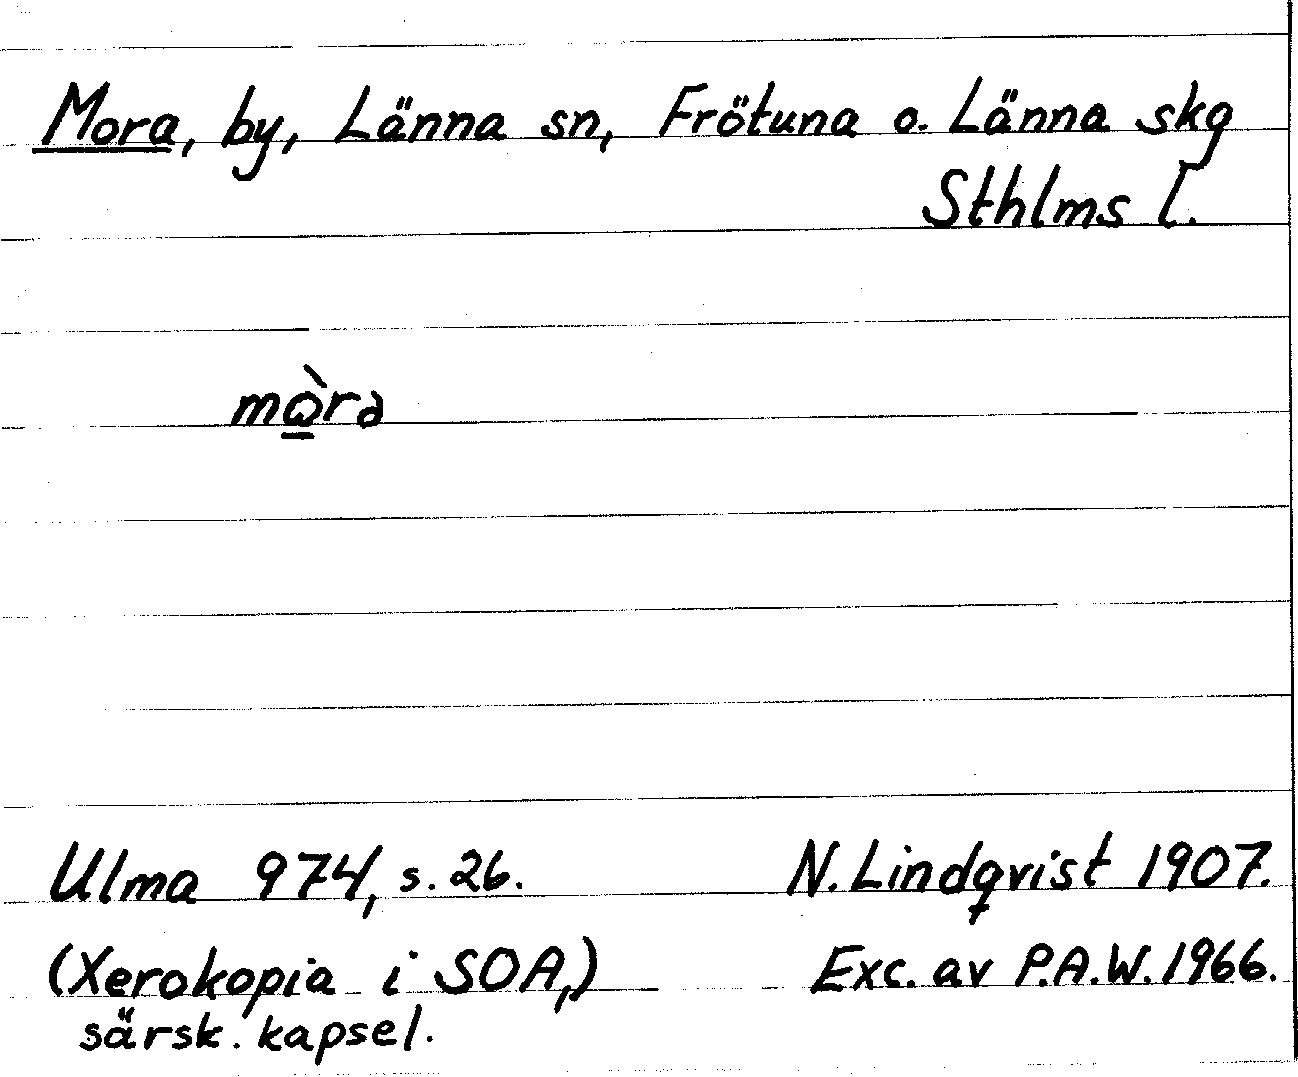 Mora, by, Länna sn, Frötuna o. Länna skg
Sthlms l.
mὼ̲rə
Ulma 974, s. 26. N. Lindqvist 1907.
(Xerokopia i SOA,) Exc. av P.A.W. 1966.
särsk. kapsel.